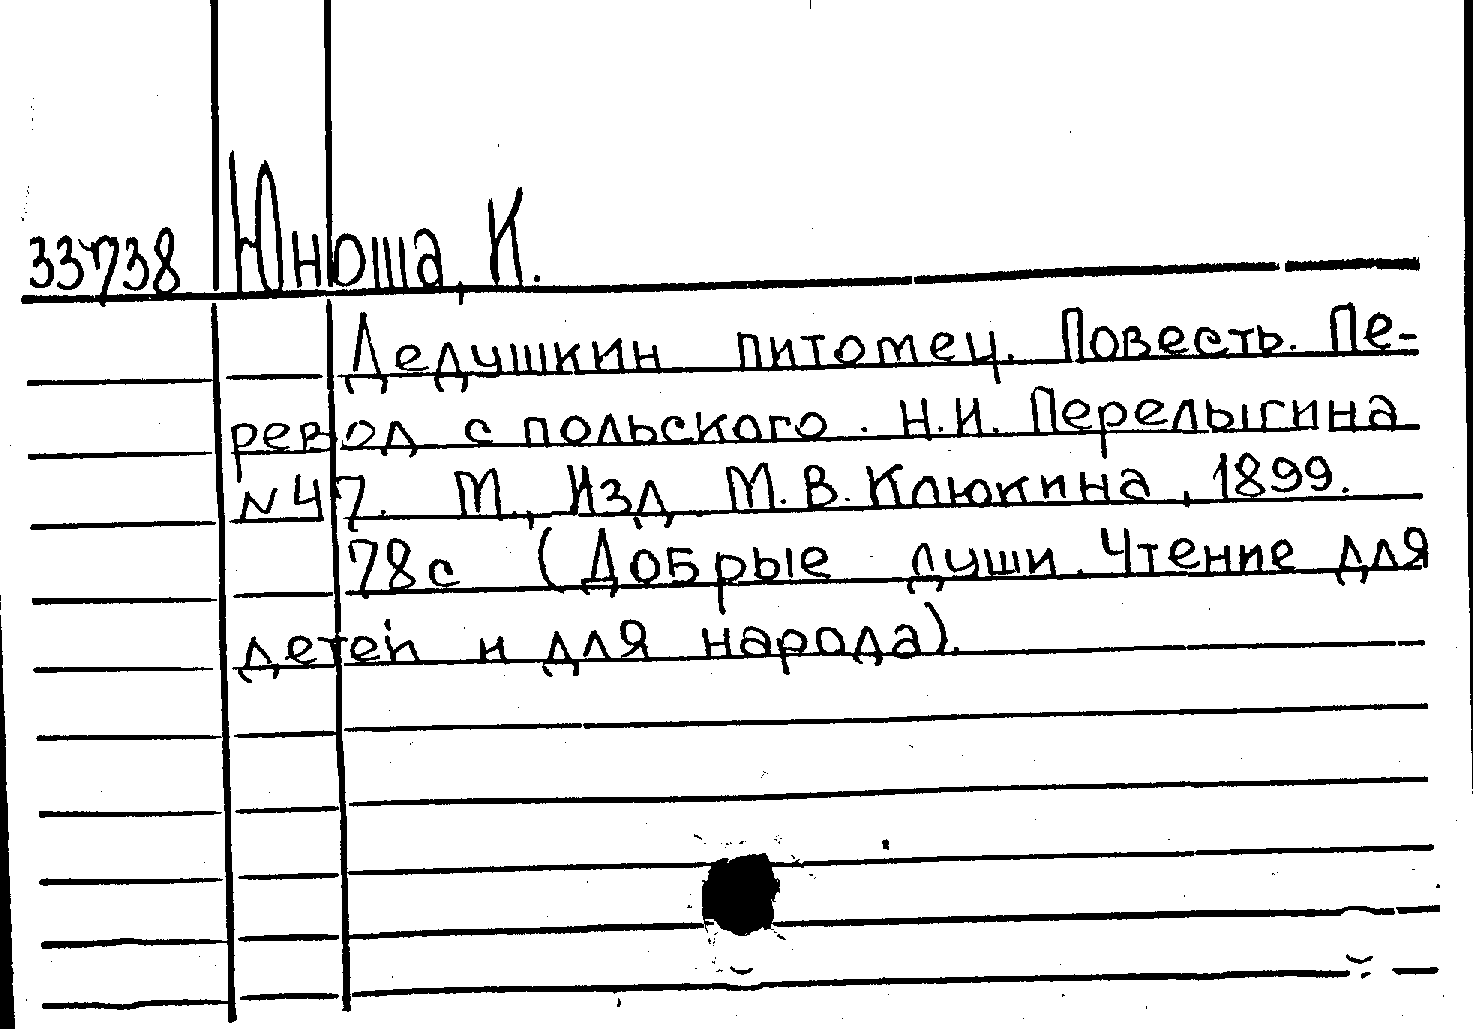 33738 Юноша, К.
Дедушкин питомец. Повесть. Пе-
ревод с польского. Н.И. Перелыгина
N 47. М., Изд М.В. Клюкина, 1899.
78с (Добрые души. Чтение для
детей и для народа).